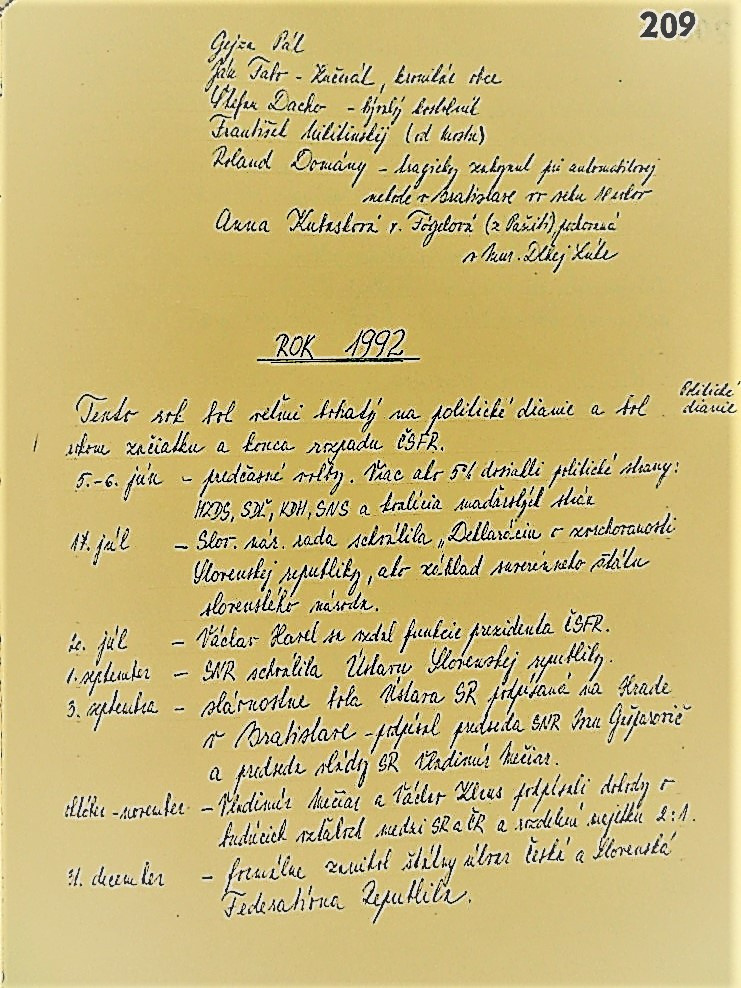 209
Gejza Pál
Ján Tato - Začnál, kronikár obce
Štefan Dacho - bývalý kostolník
František Mikitinskij (od mostu)
Roland Domány - tragicky zahynul pri automobilovej
nehode v Bratislave vo veku 18 rokov
Anna Kubasková r. Fógelová (z Pažiti), pochovaná
v Mur. Dlhej Lúke
ROK 1992
Politické
dianie
Tento rok bol veľmi bohatý na politické dianie a bol
rokom začiatku a konca rozpadu ČSFR.
5.-6. jún - predčasné voľby. Viac ako 5% dosiahli politické strany:
HZDS, SDĽ, KDH, SNS a koalícia maďarských strán
17. júl - Slov. nár. rada schválila „Deklaráciu o zvrchovanosti
Slovenskej republiky, ako základ suverénneho štátu
slovenského národa.
20. júl - Václav Havel sa vzdal funkcie prezidenta ČSFR.
1. september - SNR schválila Ústavu Slovenskej republiky.
3. septembra - slávnostne bola Ústava SR podpísaná na Hrade
v Bratislave - podpísal predseda SNR Ivan Gašparovič
a predseda vlády SR Vladimír Mečiar.
október - november - Vladimír Mečiar a Václav Klaus podpísali dohody o
budúcich vzťahoch medzi SR a ČR a rozdelení majetku 2:1.
31. december - formálne zanikol štátny útvar Česká a Slovenská
Federatívna Republika.